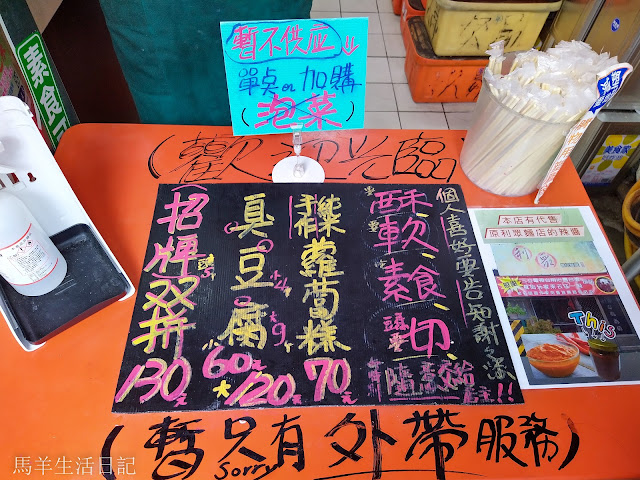 暫不供應
單点or加購
(泡菜)
素食
(歡迎光臨
個人喜好要告知謝謝
酥、軟、
素食、切、
隨意
純手作蘿蔔糕
70元
臭豆腐
小4
大9
60元
120元
(招牌雙拼
130元
本店有代售
原利眾麵店的辣醬
This
(暫只有外帶服務)
Sorry
馬羊生活日記